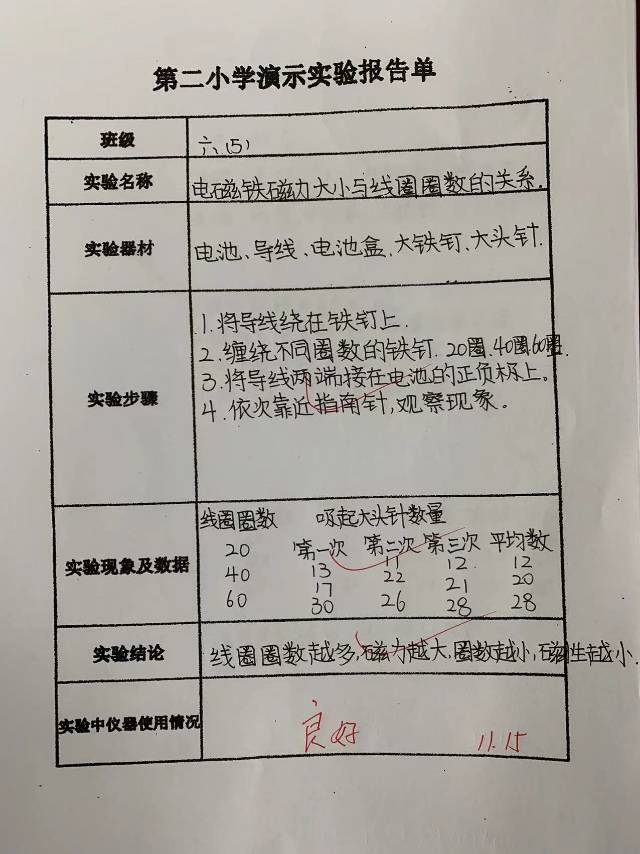 第二小学演示实验报告单
班级 六(5)
实验名称 电磁铁磁力大小与线圈圈数的关系.
实验器材 电池、导线、电池盒、大铁钉、大头针.
实验步骤
1.将导线绕在铁钉上.
2.缠绕不同圈数的铁钉. 20圈.40圈.60圈.
3.将导线两端接在电池的正负极上。
4.依次靠近指南针,观察现象。
实验现象及数据
线圈圈数 吸起大头针数量
第一次 第二次 第三次 平均数
20 13 11 12. 12
40 17 22 21 20
60 30 26 28 28
实验结论 线圈圈数越多,磁力越大,圈数越小,磁性越小.
实验中仪器使用情况 良好 11.15